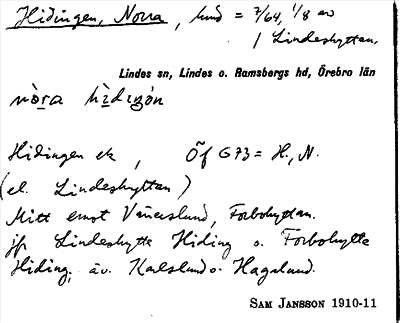 Hidingen, Norra, hmd = 7/64, 1/8 av
/ Lindeshyttan.
Lindes sn, Lindes o. Ramsbergs hd, Örebro län
nòra hìdiŋón
Hidingen ek, Öf G73 = H., N.
(el. Lindeshyttan)
Mitt emot Väneslund, Forbohyttan.
jfr Lindeshytte Hiding o. Forbohytte
Hiding, äv. Karlslund o. Hagalund.
SAM JANSSON 1910-11